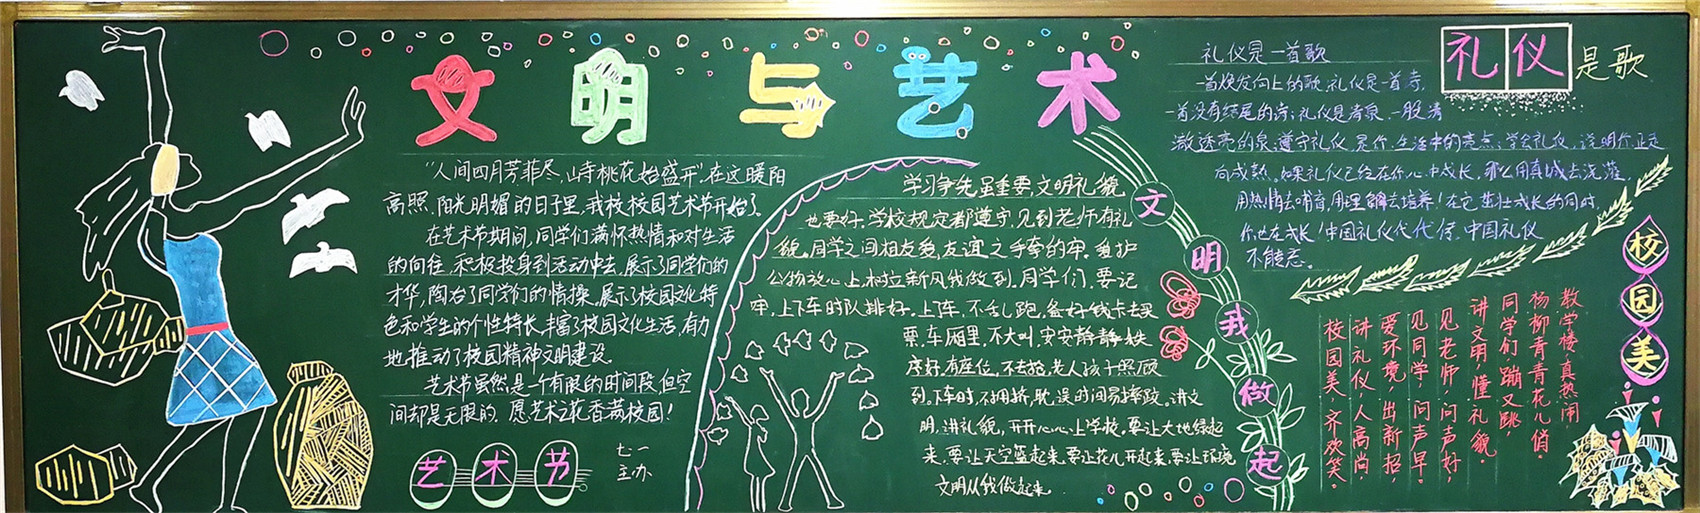 文明与艺术
“人间四月芳菲尽，山寺桃花始盛开。在这暖阳
高照、阳光明媚的日子里，我校校园艺术节开始了。
在艺术节期间，同学们满怀热情和对生活
的向往，积极投身到活动中去，展示了同学们的
才华，陶冶了同学们的情操，展示了校园文化特
色和学生的个性特长，丰富了校园文化生活，有力
地推动了校园精神文明建设。
艺术节虽然是一个有限的时间段，但空
间却是无限的。愿艺术之花香满校园！
艺术节
七一
主办
文明我做起
学习争先虽重要，文明礼貌
也要好。学校规定都遵守，见到老师有礼
貌。同学之间相友爱，友谊之手牵的牢。爱护
公物放心上，树立新风我做到。同学们，要记
牢，上下车时队排好。上车，不乱跑，备好钱卡去买
票，车厢里，不大叫，安安静静秩
序好。有座位，不去抢，老人孩子照顾
到。下车时，不拥挤，耽误时间易摔跤。讲文
明，讲礼貌，开开心心上学校。要让大地绿起
来，要让天空蓝起来，要让花儿开起来，要让环境
文明从我做起来。
礼仪是歌
礼仪是一首歌
一首焕发向上的歌，礼仪是一首诗，
一首没有结尾的诗；礼仪是清泉，一股清
澈透亮的泉。遵守礼仪，是你生活中的亮点；学会礼仪，说明你正走
向成熟。如果礼仪已经在你心中成长，那么用真诚去浇灌，
用热情去哺育，用理解去培养！在它茁壮成长的同时，
你也在成长！中国礼仪代代传，中国礼仪
不能忘。
校园美
教学楼，真热闹，
杨柳青青花儿俏。
同学们，蹦又跳，
讲文明，懂礼貌。
见老师，问声好，
见同学，问声早。
爱环境，出新招，
讲礼仪，人高尚，
校园美，齐欢笑。